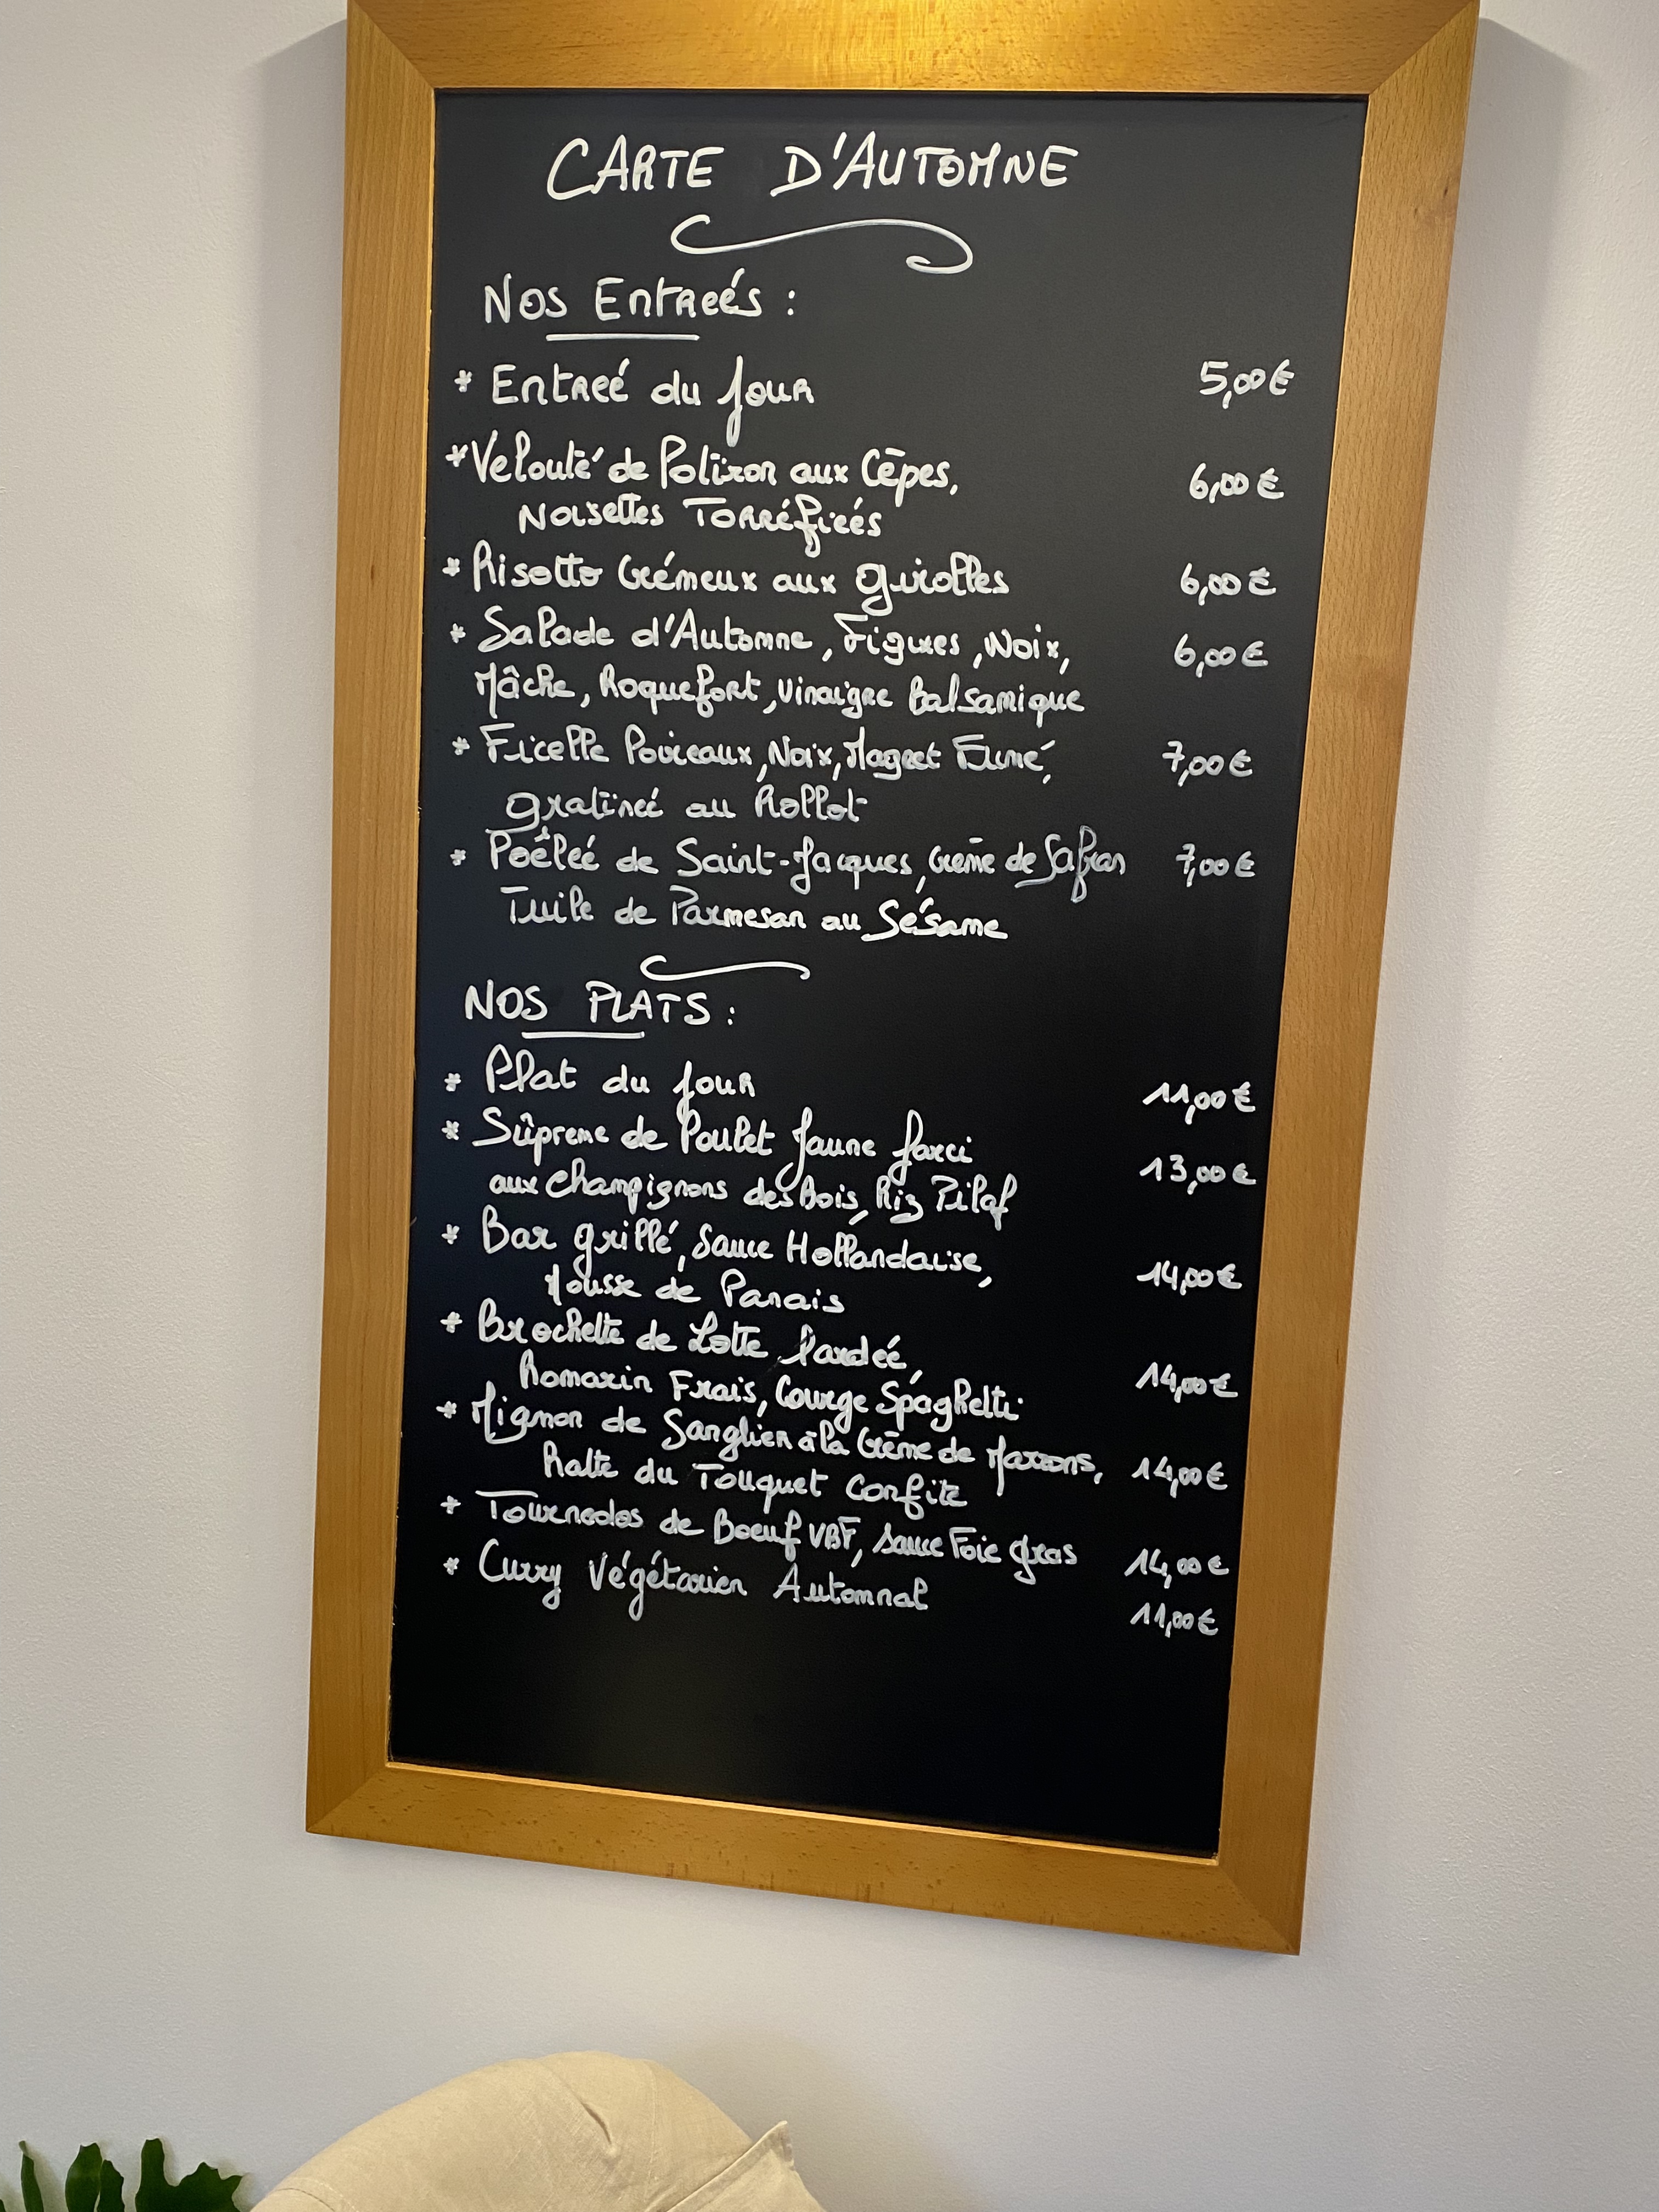 CARTE D'AUTOMNE
NOS ENTREÉS :
* ENTREÉ du JOUR 5,00€
* Velouté de Potiron aux Cèpes, 6,00€
Noisettes Torréfieés
* Risotto Crémeux aux girolles 6,00€
* Salade d'Automne, Figues, Noix, 6,00€
Mâche, Roquefort, Vinaigre Balsamique
* Ficelle Poireaux, Noix, Magret Fumé, 7,00€
gratineé au Rollot
* Poéleé de Saint-Jacques, Crème de Safran 7,00€
Tuile de Parmesan au Sésame
NOS PLATS :
* Plat du JOUR 11,00€
* Sûpreme de Poulet Jaune farci 13,00€
aux champignons des Bois, Riz Pilaf
* Bar grillé, Sauce Hollandaise, 14,00€
Mousse de Panais
* Brochette de Lotte lardeé, 14,00€
Romarin Frais, Courge Spaghetti
* Mignon de Sanglier à la Crème de Marrons, 14,00€
Ratte du Touquet Confite
* Tournedos de Boeuf VBF, sauce Foie gras 14,00€
* Curry Végétarien Automnal 11,00€